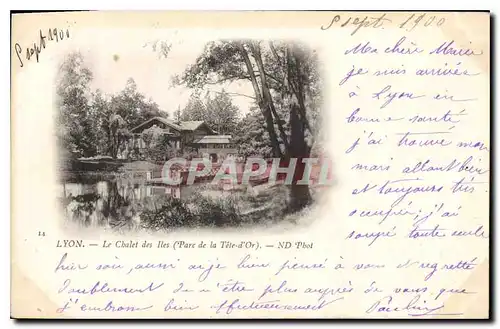 5 sept 1900
5 sept 1900
Ma chère Marie
je suis arrivée
à Lyon en
bonne santé
j'ai trouvé mon
mari allant bien
et toujours très
occupée, j'ai
soupé toute seule
CPARAMA
11
LYON. — Le Chalet des Iles (Parc de la Tête-d'Or). — ND Phot
hier soir, aussi ai-je bien pensé à vous et regretté
doublement de n'être plus auprès de vous tous
j'embrasse bien affectueusement Pauline